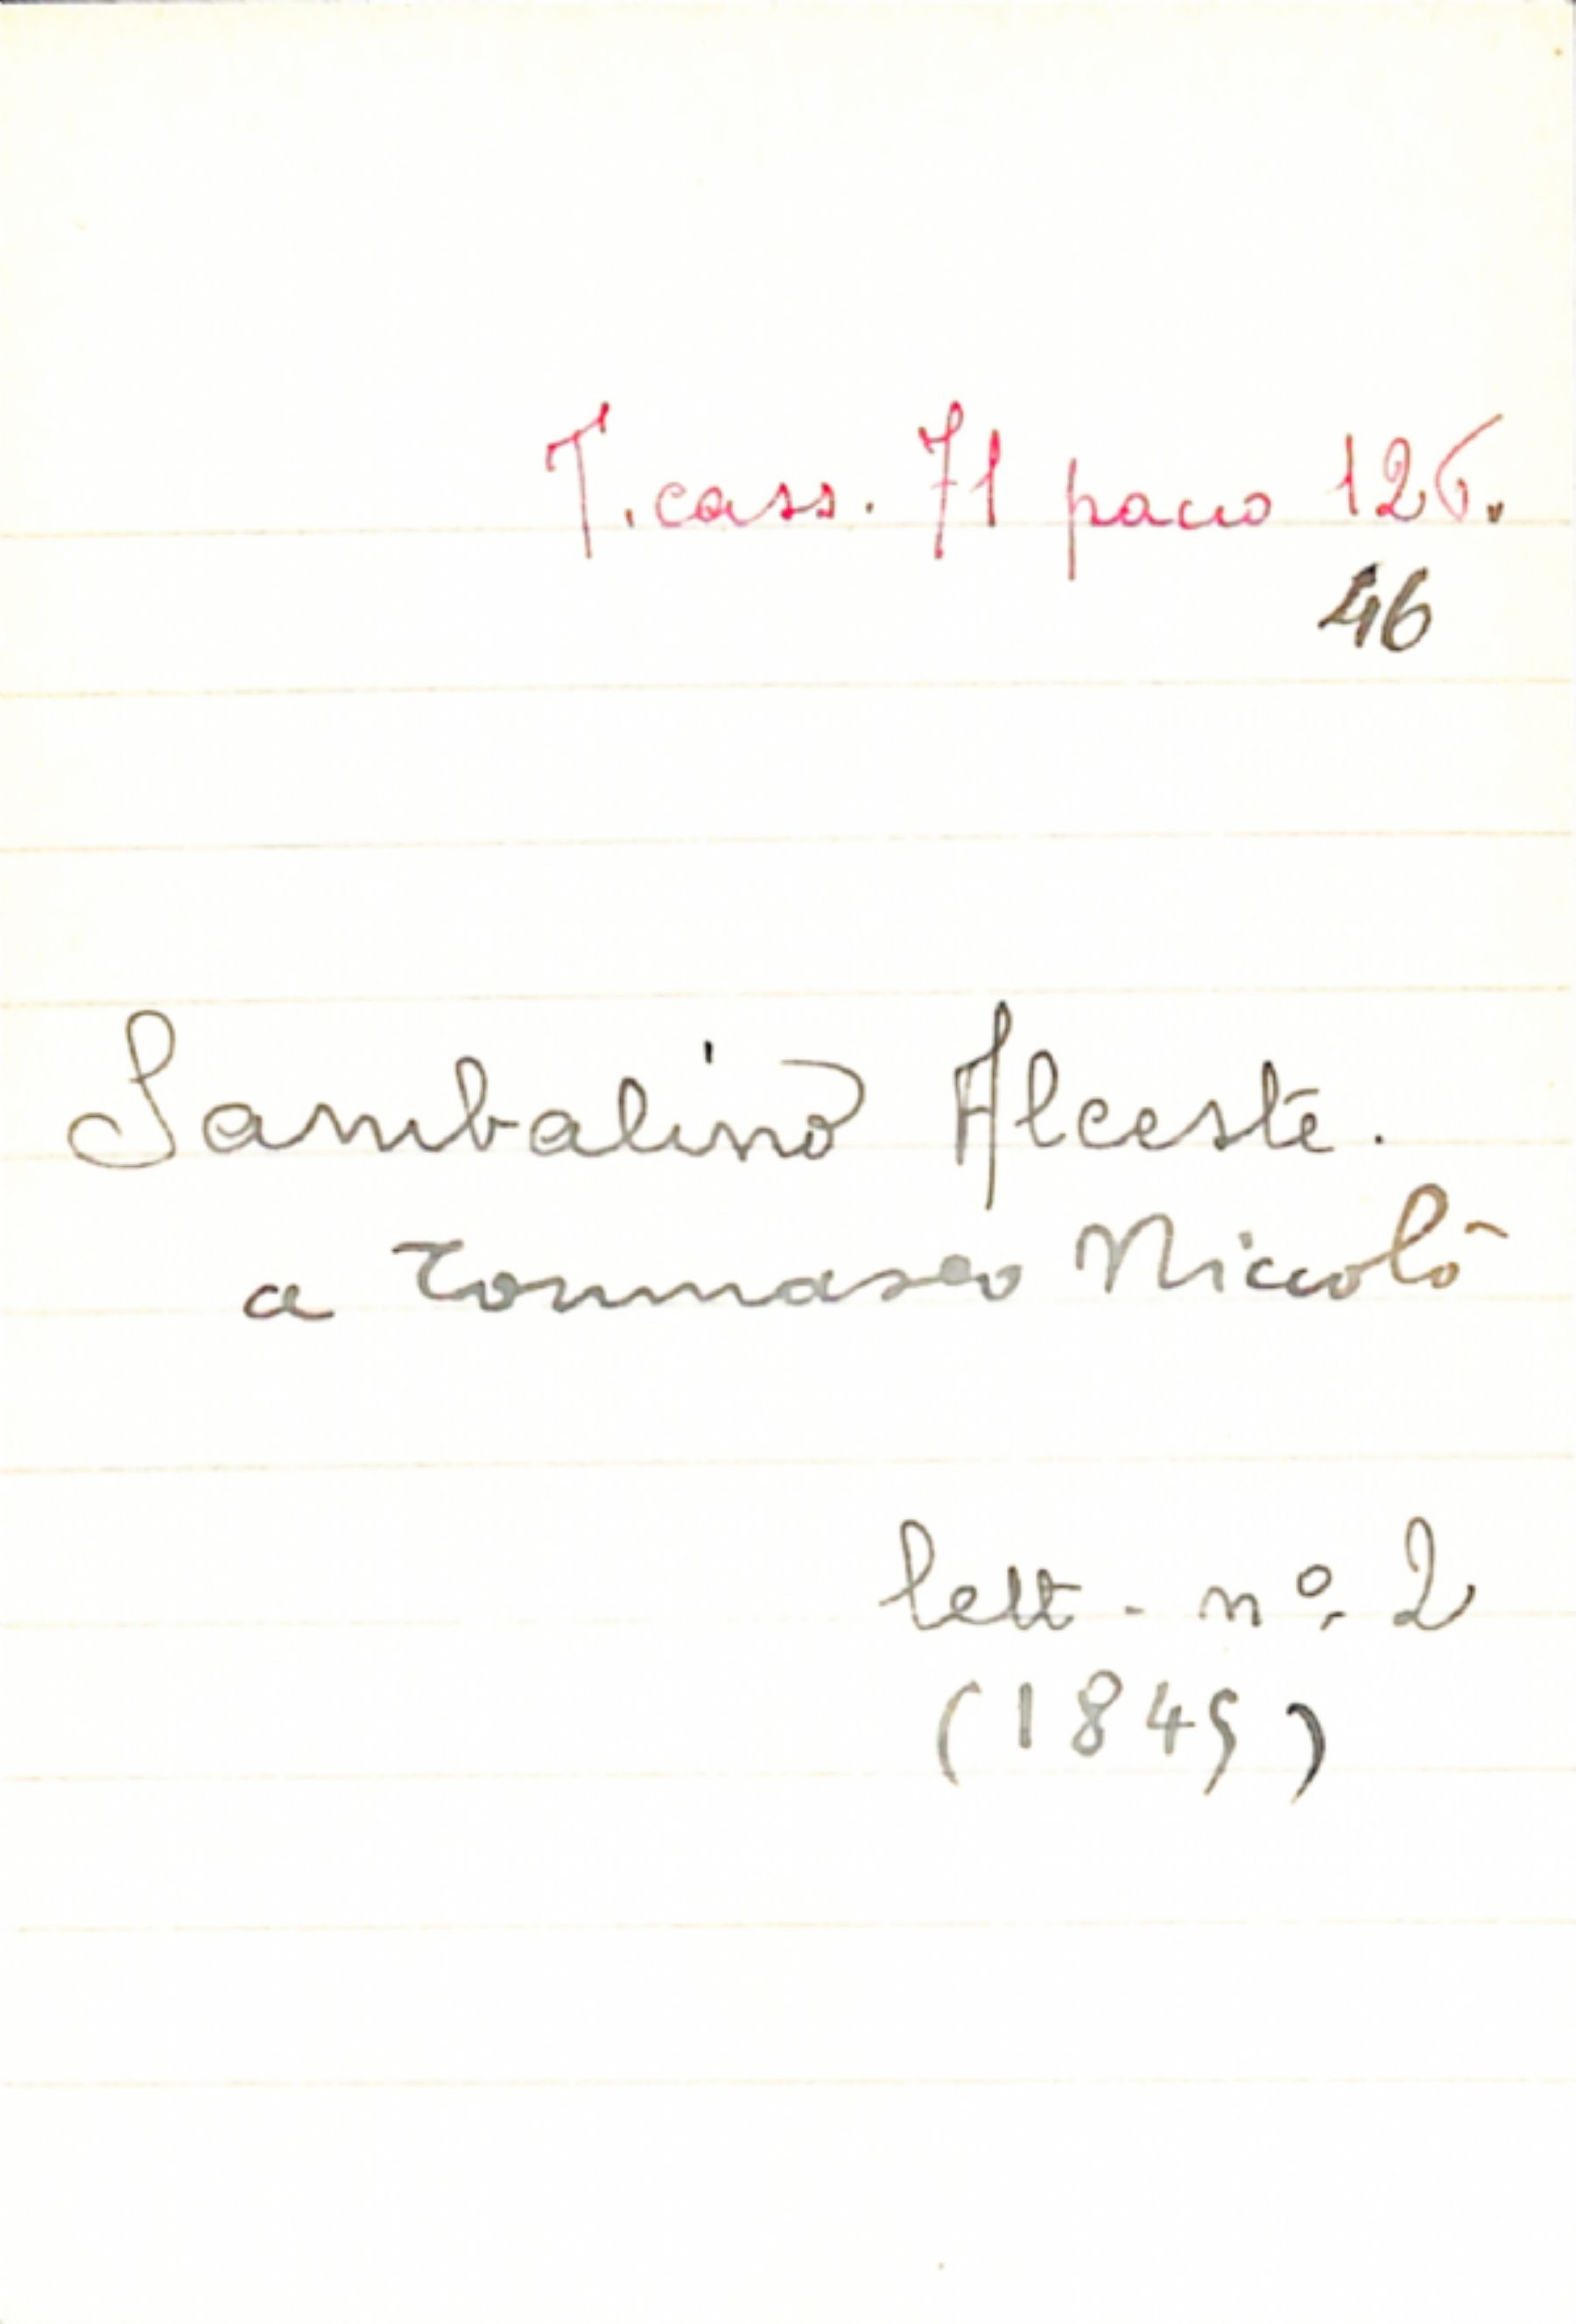 T. cass. 71 pacco 126.
46
Sambalino Alceste.
a Tommaseo Niccolò
lett. nº. 2
(1849)